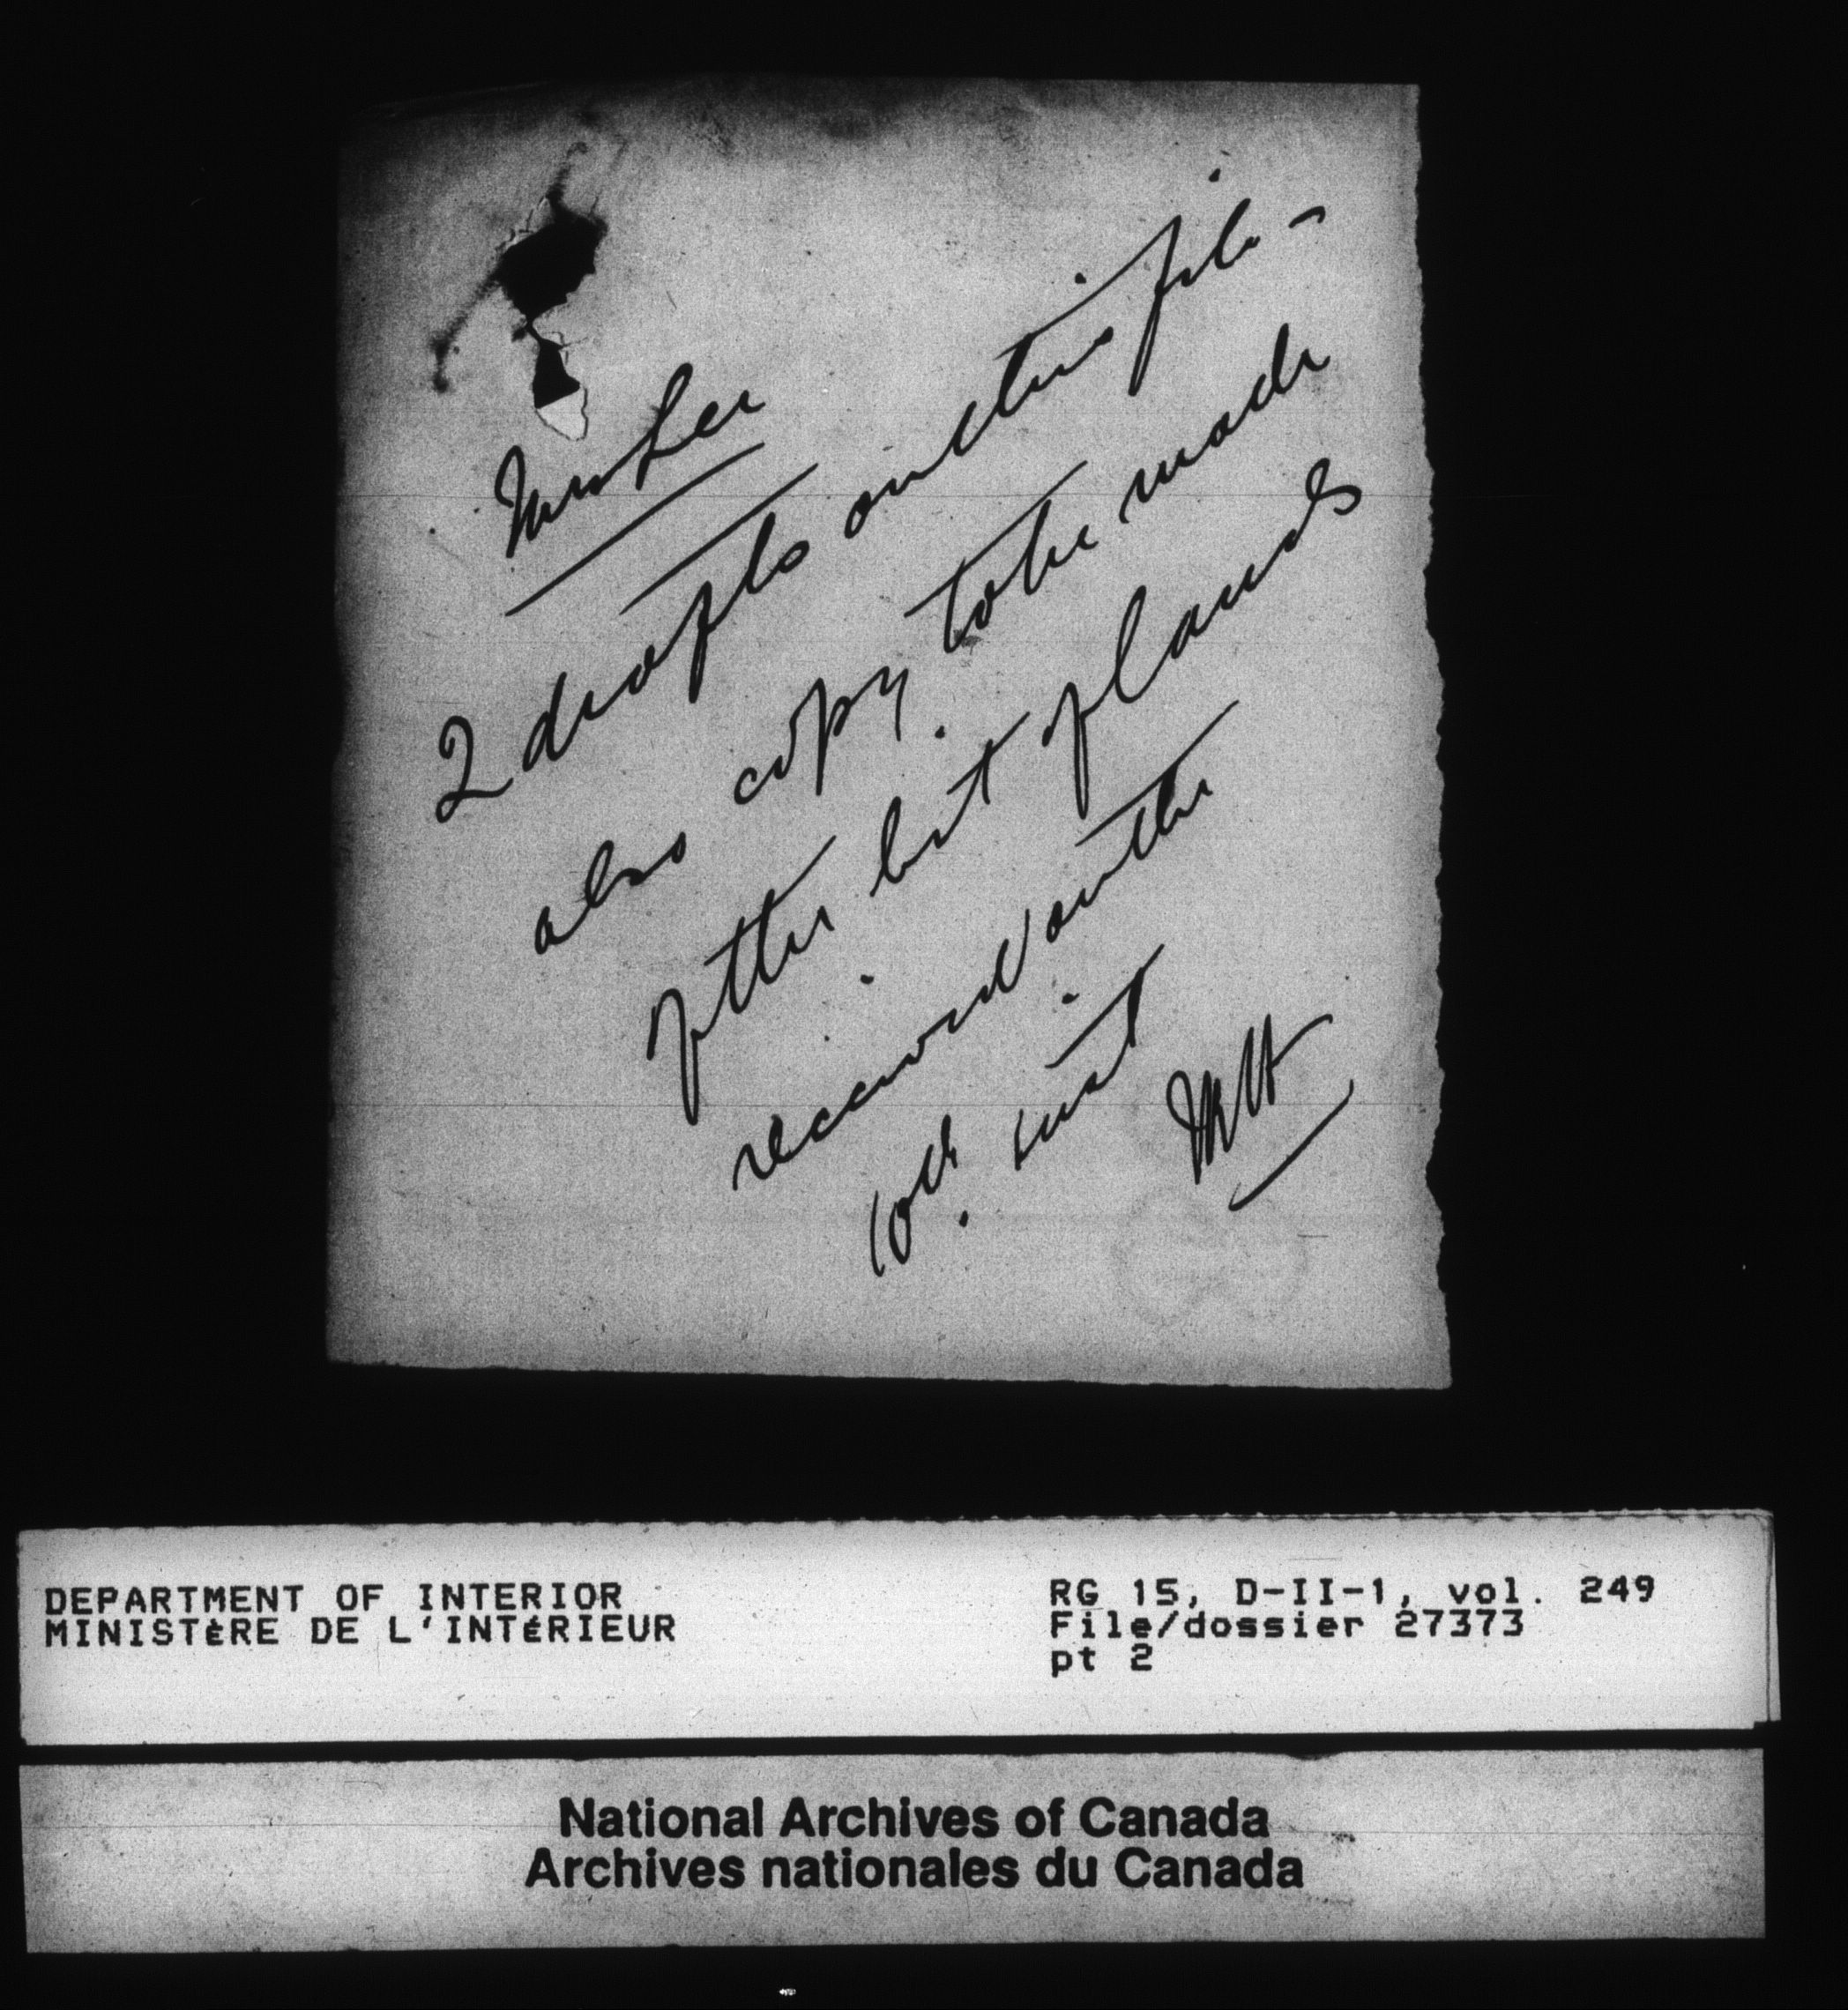 Mr Lee
2 drafts on this file -
also copy to be made
of the list of lands
received on the
10th inst
DEPARTMENT OF INTERIOR
MINISTÈRE DE L'INTÉRIEUR
RG 15, D-II-1, vol. 249
File/dossier 27373
pt 2
National Archives of Canada
Archives nationales du Canada